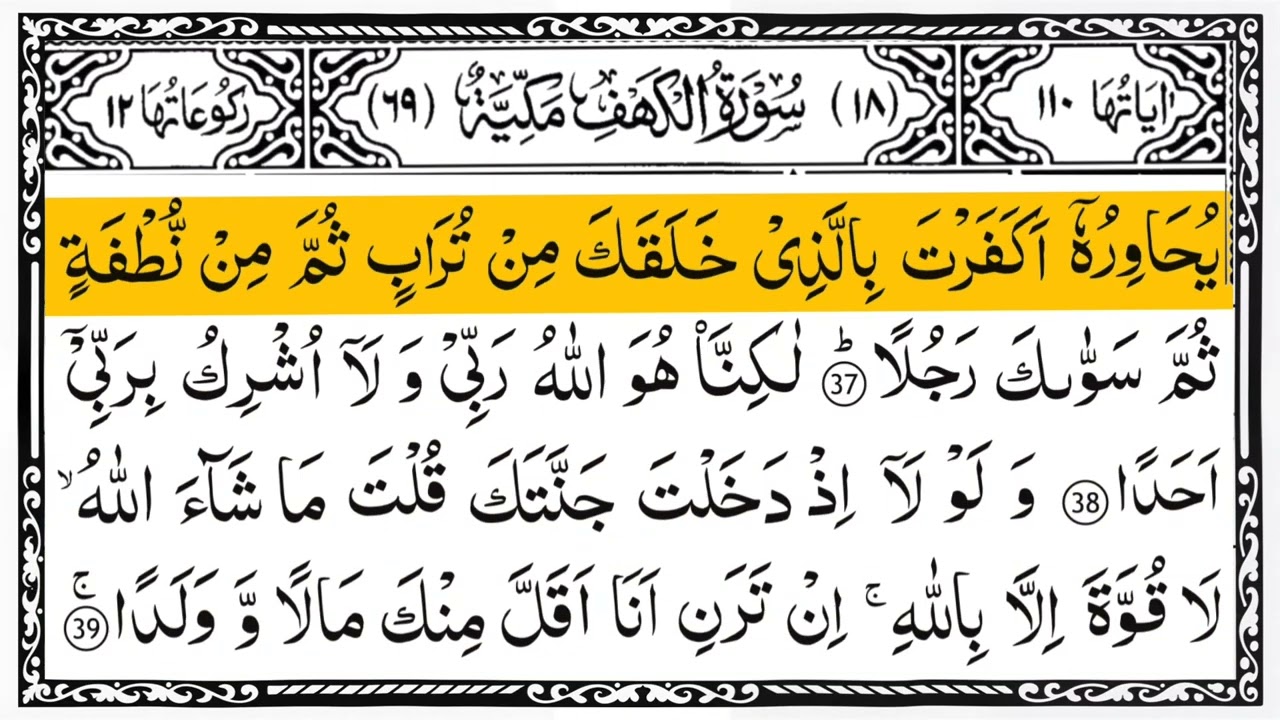 اٰيَاتُهَا ١١٠
(١٨) سُوْرَةُ الْكَهْفِ مَكِّيَّةٌ (٦٩)
رُكُوْعَاتُهَا ١٢
يُحَاوِرُهٗۤ اَكَفَرْتَ بِالَّذِىْ خَلَقَكَ مِنْ تُرَابٍ ثُمَّ مِنْ نُّطْفَةٍ
ثُمَّ سَوّٰٮكَ رَجُلًا ؕ 37 لٰـكِنَّا۟ هُوَ اللّٰهُ رَبِّىْ وَ لَاۤ اُشْرِكُ بِرَبِّىْۤ
اَحَدًا 38 وَ لَوْ لَاۤ اِذْ دَخَلْتَ جَنَّتَكَ قُلْتَ مَا شَآءَ اللّٰهُ ۙ
لَا قُوَّةَ اِلَّا بِاللّٰهِ ۚ اِنْ تَرَنِ اَنَا اَقَلَّ مِنْكَ مَالًا وَّ وَلَدًا ۚ 39